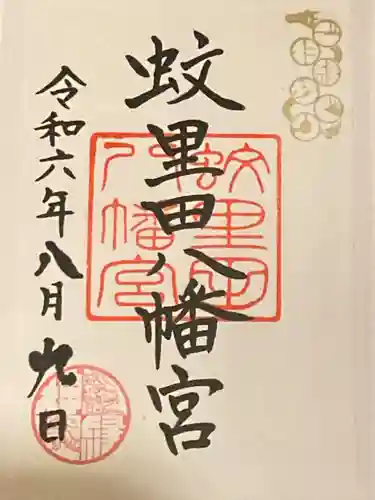 蛟里田八幡宮
令和六年八月九日
蛟里田
八幡宮